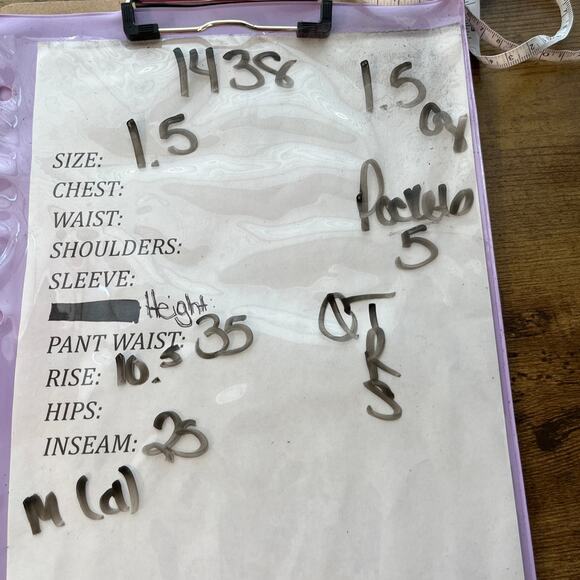 1438
1.5
oy
SIZE: 1.5
CHEST:
WAIST:
Pockets
5
SHOULDERS:
SLEEVE:
Height:
PANT WAIST: 35
RISE: 10.5
HIPS:
INSEAM: 25
QTRS
M (a)